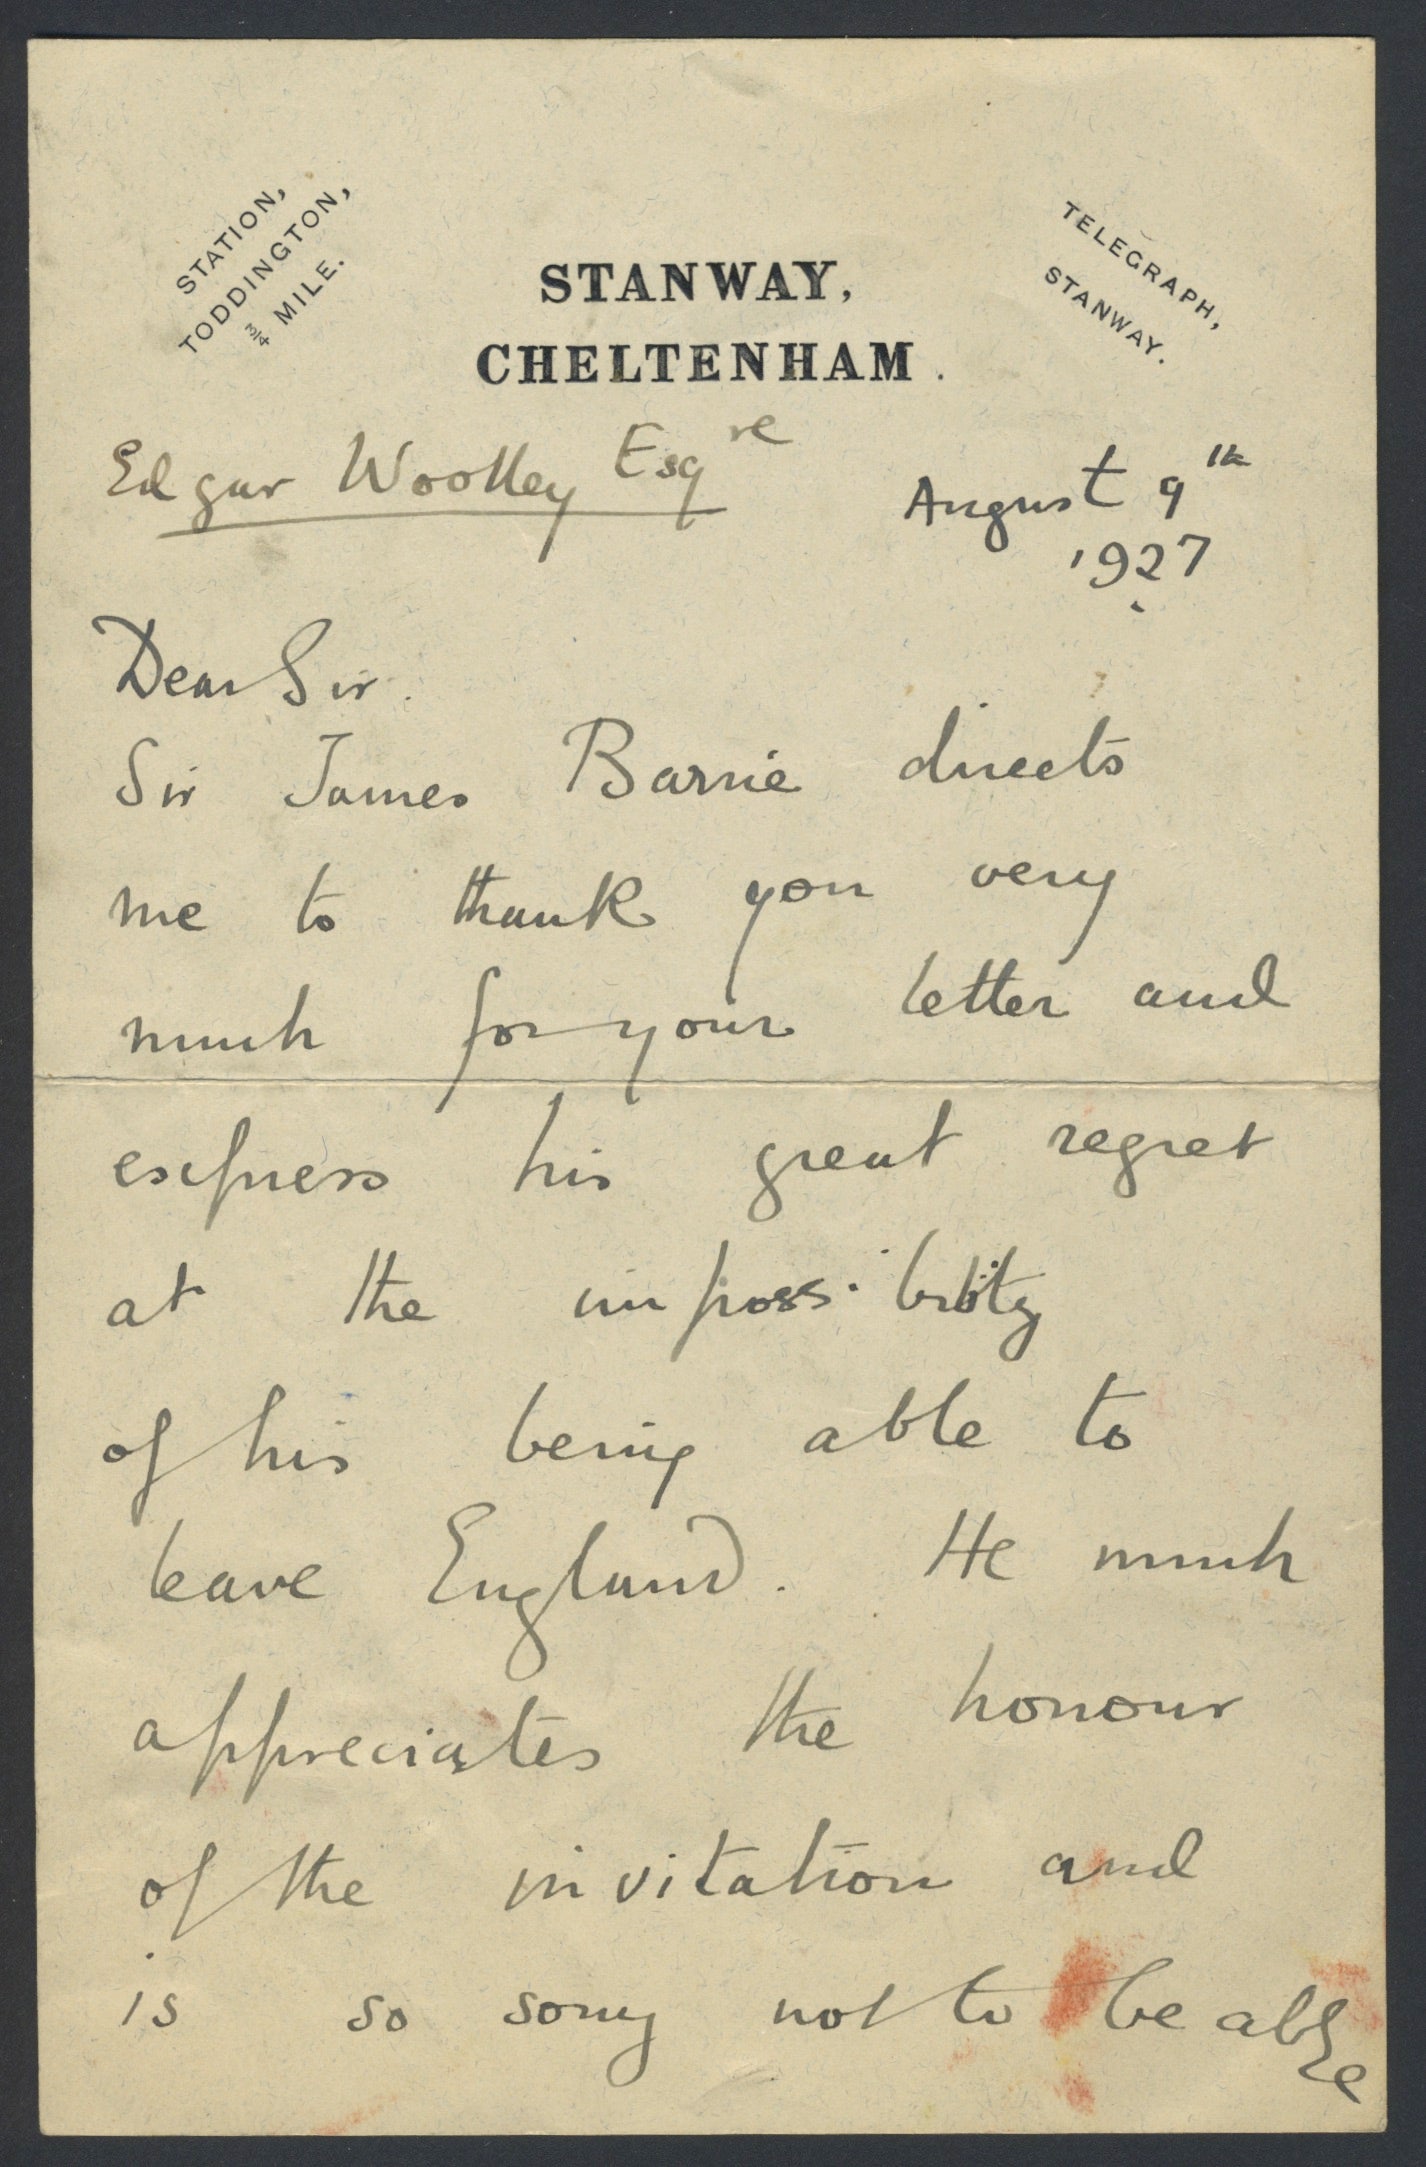 STATION,
TODDINGTON,
¾ MILE.
STANWAY,
CHELTENHAM.
TELEGRAPH,
STANWAY.
Edgar Woolley Esqre
August 9th
1927
Dear Sir.
Sir James Barrie directs
me to thank you very
much for your letter and
express his great regret
at the impossibility
of his being able to
leave England. He much
appreciates the honour
of the invitation and
is so sorry not to be able